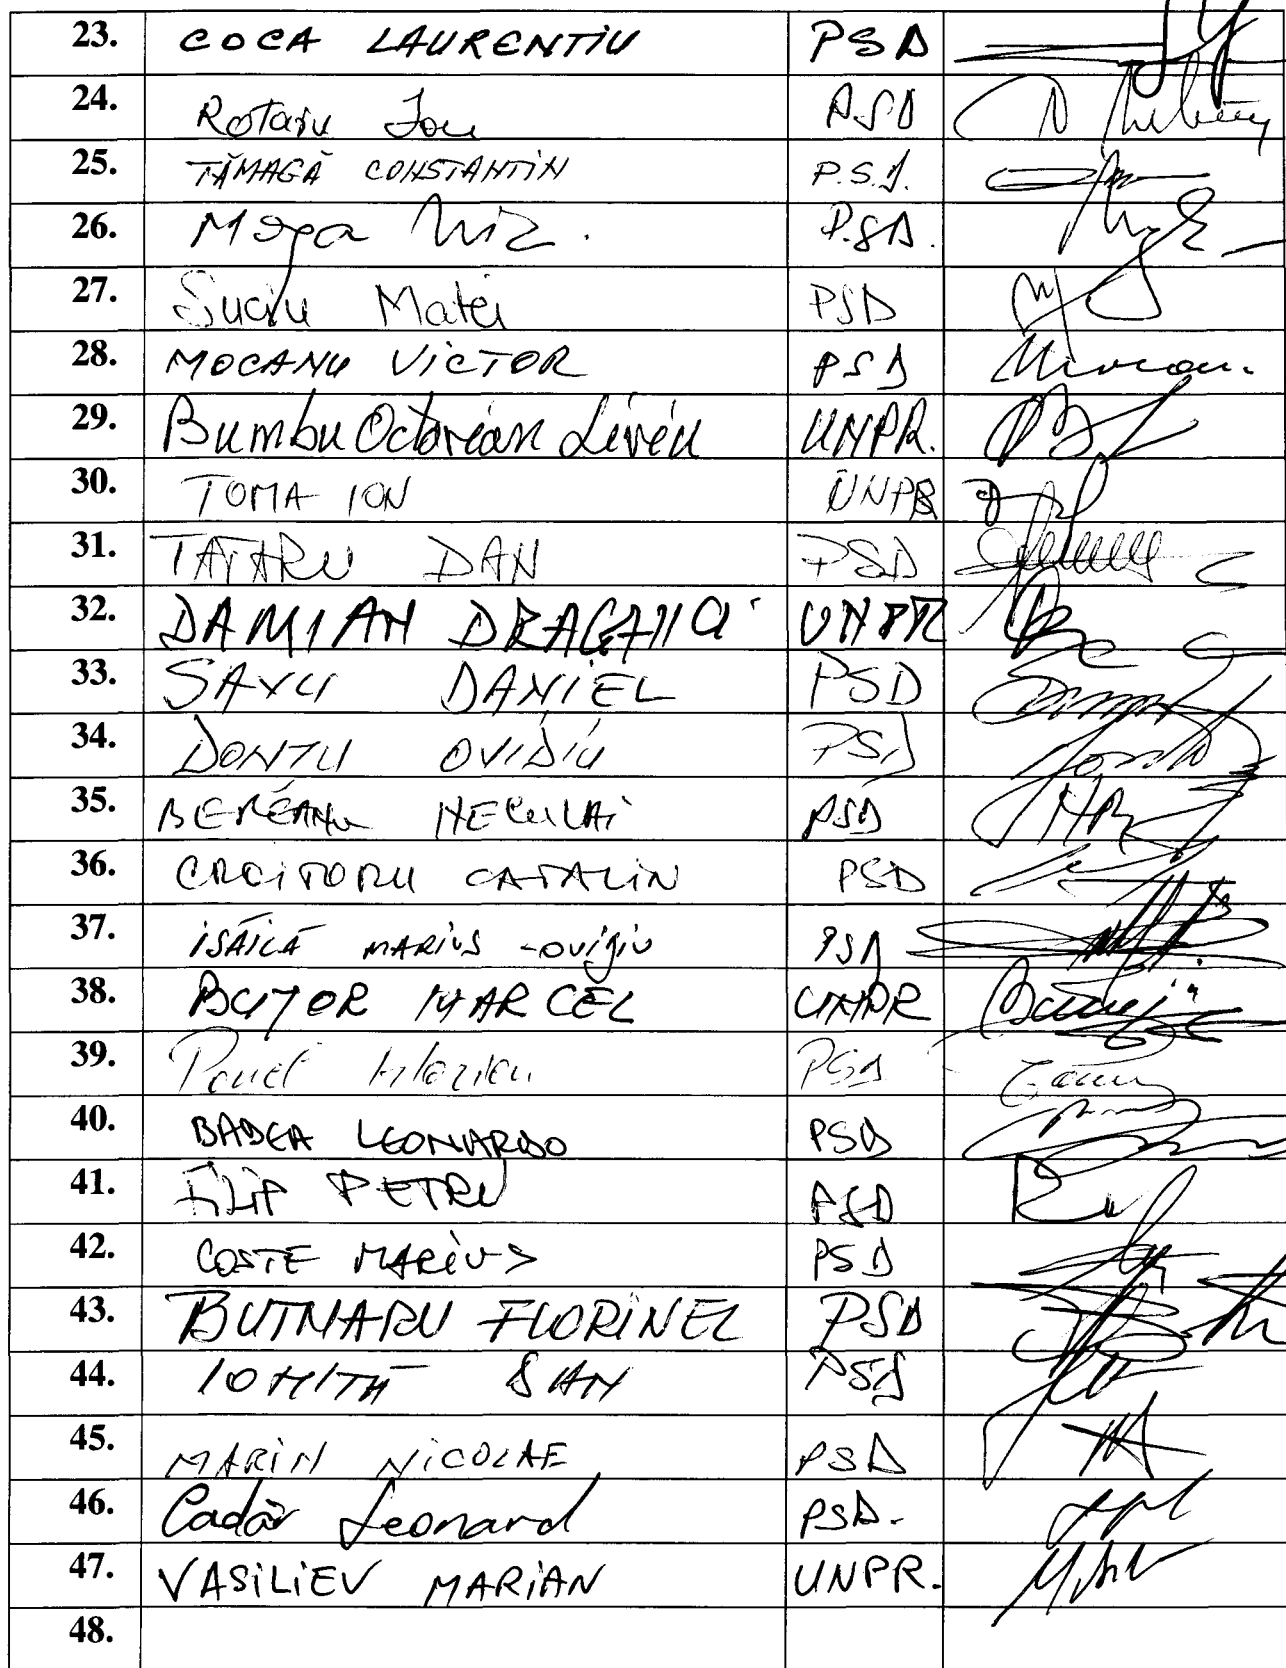 23. COCA LAURENTIU PSD
24. Rotaru Ion PSD
25. TĂMAGĂ CONSTANTIN P.S.D.
26. P.S.D.
27. Suciu Matei PSD
28. MOCANU VICTOR PSD
29. Bumbu Octavian Liviu UNPR.
30. TOMA ION UNPR
31. TATARU DAN PSD
32. DAMIAN DRAGANA UNPR
33. SAVU DANIEL PSD
34. DONTU OVIDIU PSD
35. BEREANU NECULAI PSD
36. CROITORU CATALIN PSD
37. ISĂILĂ MARIUS-OVIDIU PSD
38. BUJOR MARCEL UNPR
39. Pavel PSD
40. BADEA LEONARDO PSD
41. FILIP PETRU PSD
42. COSTE MARIUS PSD
43. BUTNARU FLORINEL PSD
44. IONITA DAN PSD
45. MARIN NICOLAE PSD
46. Cadăr Leonard PSD.
47. VASILIEV MARIAN UNPR.
48.